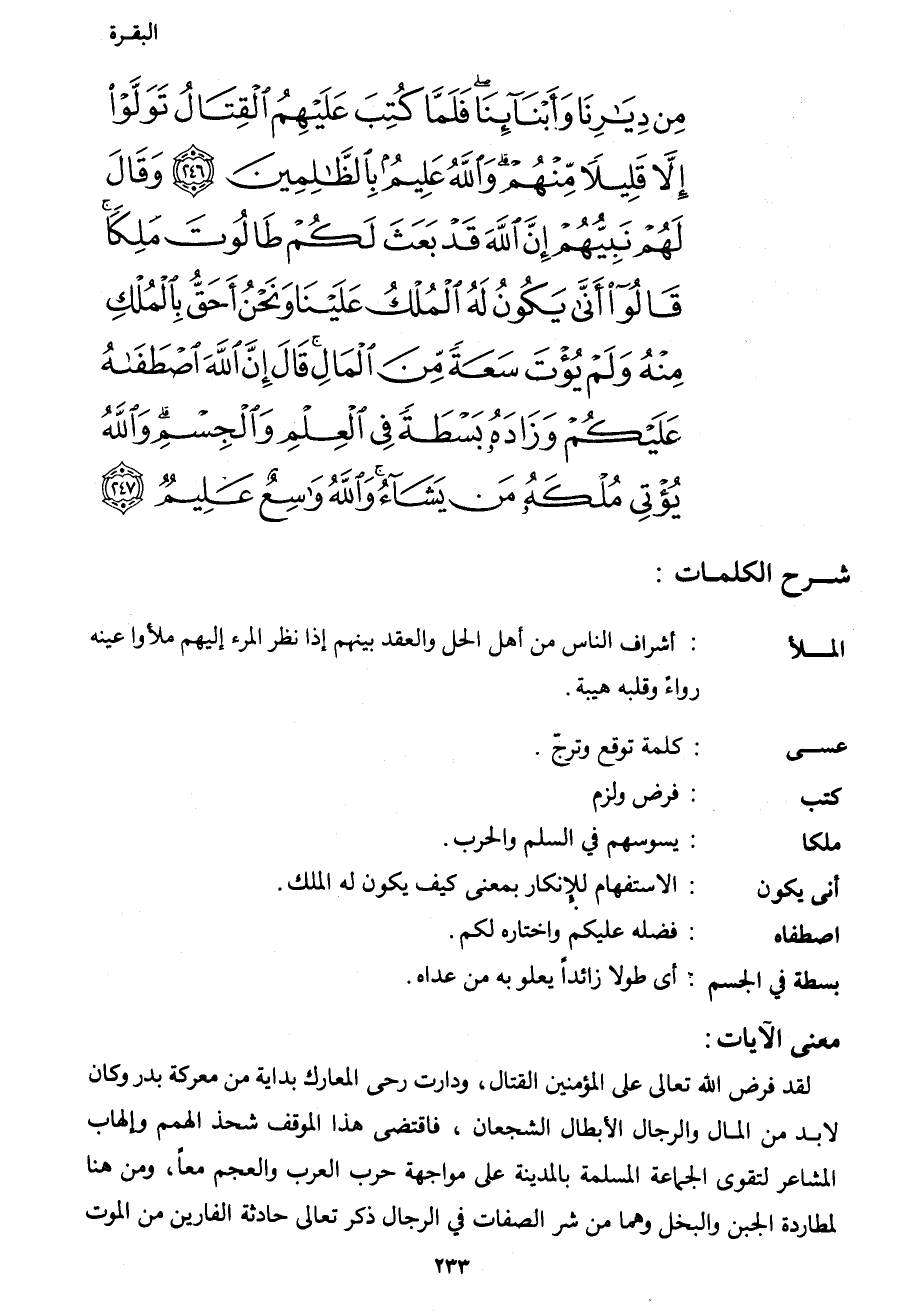 البقرة
مِن دِيَٰرِنَا وَأَبْنَآئِنَا ۖ فَلَمَّا كُتِبَ عَلَيْهِمُ ٱلْقِتَالُ تَوَلَّوْا۟
إِلَّا قَلِيلًا مِّنْهُمْ ۗ وَٱللَّهُ عَلِيمٌۢ بِٱلظَّٰلِمِينَ ﴿٢٤٦﴾ وَقَالَ
لَهُمْ نَبِيُّهُمْ إِنَّ ٱللَّهَ قَدْ بَعَثَ لَكُمْ طَالُوتَ مَلِكًا ۚ
قَالُوٓا۟ أَنَّىٰ يَكُونُ لَهُ ٱلْمُلْكُ عَلَيْنَا وَنَحْنُ أَحَقُّ بِٱلْمُلْكِ
مِنْهُ وَلَمْ يُؤْتَ سَعَةً مِّنَ ٱلْمَالِ ۚ قَالَ إِنَّ ٱللَّهَ ٱصْطَفَىٰهُ
عَلَيْكُمْ وَزَادَهُۥ بَسْطَةً فِى ٱلْعِلْمِ وَٱلْجِسْمِ ۖ وَٱللَّهُ
يُؤْتِى مُلْكَهُۥ مَن يَشَآءُ ۚ وَٱللَّهُ وَٰسِعٌ عَلِيمٌ ﴿٢٤٧﴾
شـرح الكلمـات :
المـلأ : أشراف الناس من أهل الحل والعقد بينهم إذا نظر المرء إليهم ملأوا عينه
رواءً وقلبه هيبة .
عسـى : كلمة توقع وترجّ .
كتب : فرض ولزم
ملكا : يسوسهم في السلم والحرب .
أنى يكون : الاستفهام للإنكار بمعنى كيف يكون له الملك .
اصطفاه : فضله عليكم واختاره لكم .
بسطة في الجسم : أى طولا زائداً يعلو به من عداه .
معنى الآيات :
لقد فرض الله تعالى على المؤمنين القتال ، ودارت رحى المعارك بداية من معركة بدر وكان
لابـد من المـال والرجال الأبطال الشجعان ، فاقتضى هذا الموقف شحذ الهمم وإلهاب
المشاعر لتقوى الجماعة المسلمة بالمدينة على مواجهة حرب العرب والعجم معاً ، ومن هنا
لمطاردة الجبن والبخل وهما من شر الصفات في الرجال ذكر تعالى حادثة الفارين من الموت
٢٣٣